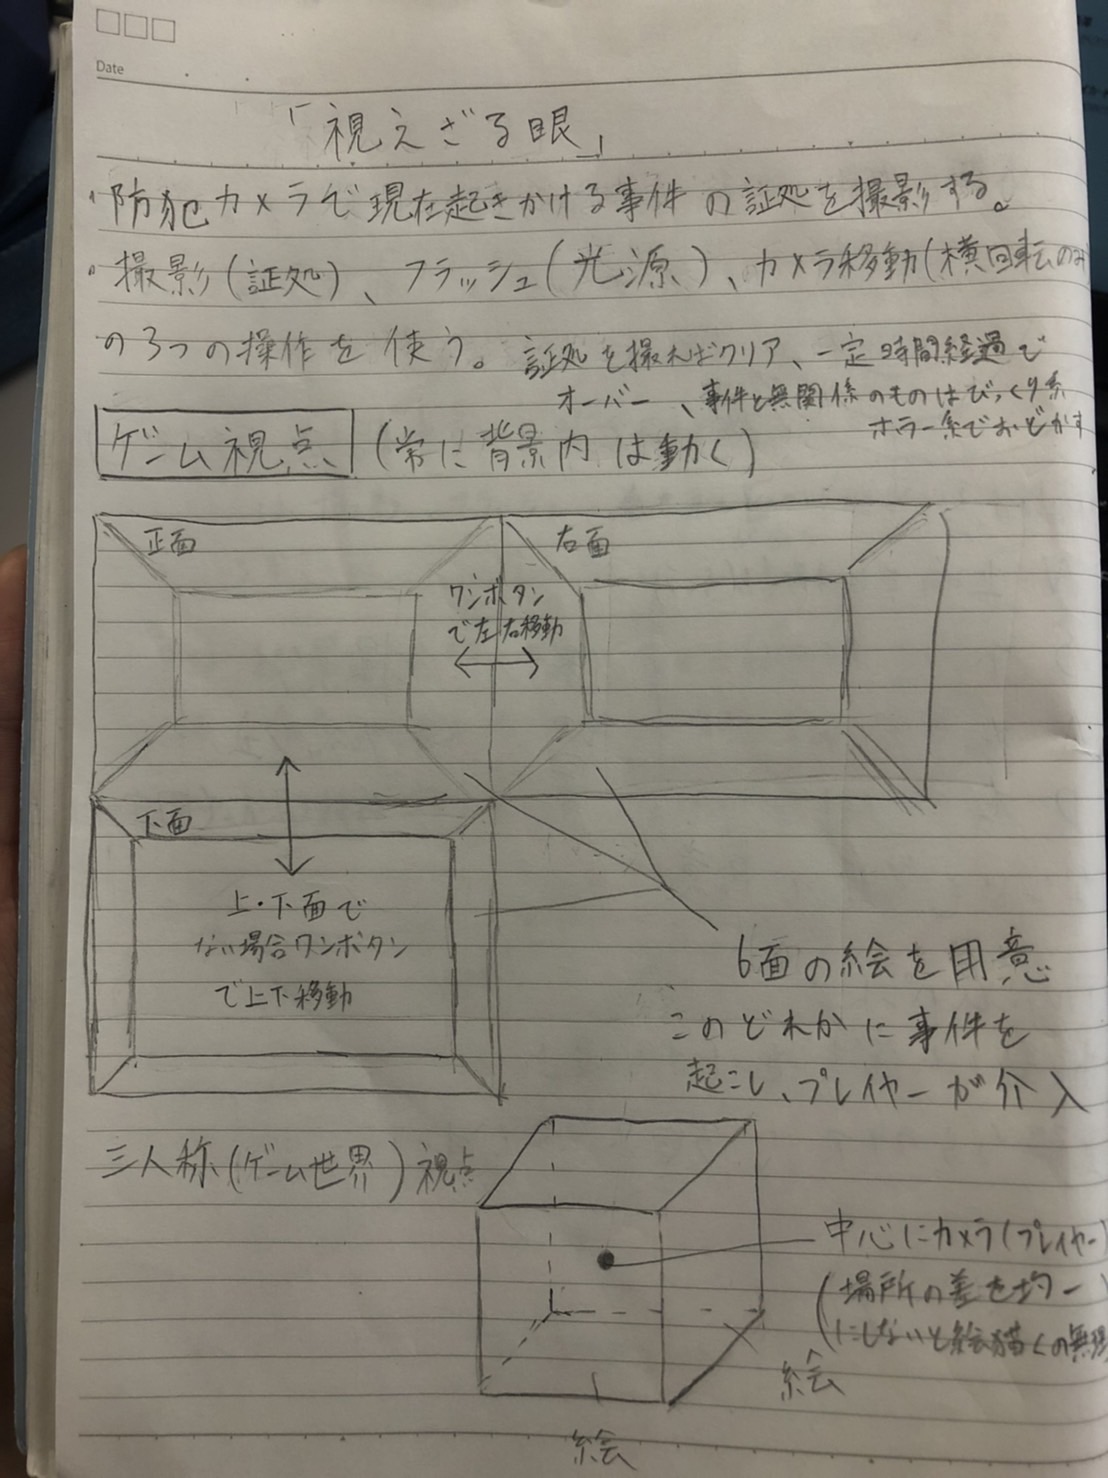 Date
「視えざる眼」
・防犯カメラで現在起きかける事件の証処を撮影する。
・撮影(証処)、フラッシュ(光源)、カメラ移動(横回転のみ
の3つの操作を使う。証処を撮ればクリア、一定時間経過で
オーバー、事件と無関係のものはびっくり系
ホラー系でおどかす
ゲーム視点(常に背景内は動く)
正面
右面
ワンボタン
で左右移動
下面
上・下面で
ない場合ワンボタン
で上下移動
6面の絵を用意
このどれかに事件を
起こし、プレイヤーが介入
三人称(ゲーム世界)視点
中心にカメラ(プレイヤー)
(場所の差を均一
にしないと絵描くの無理
絵
絵